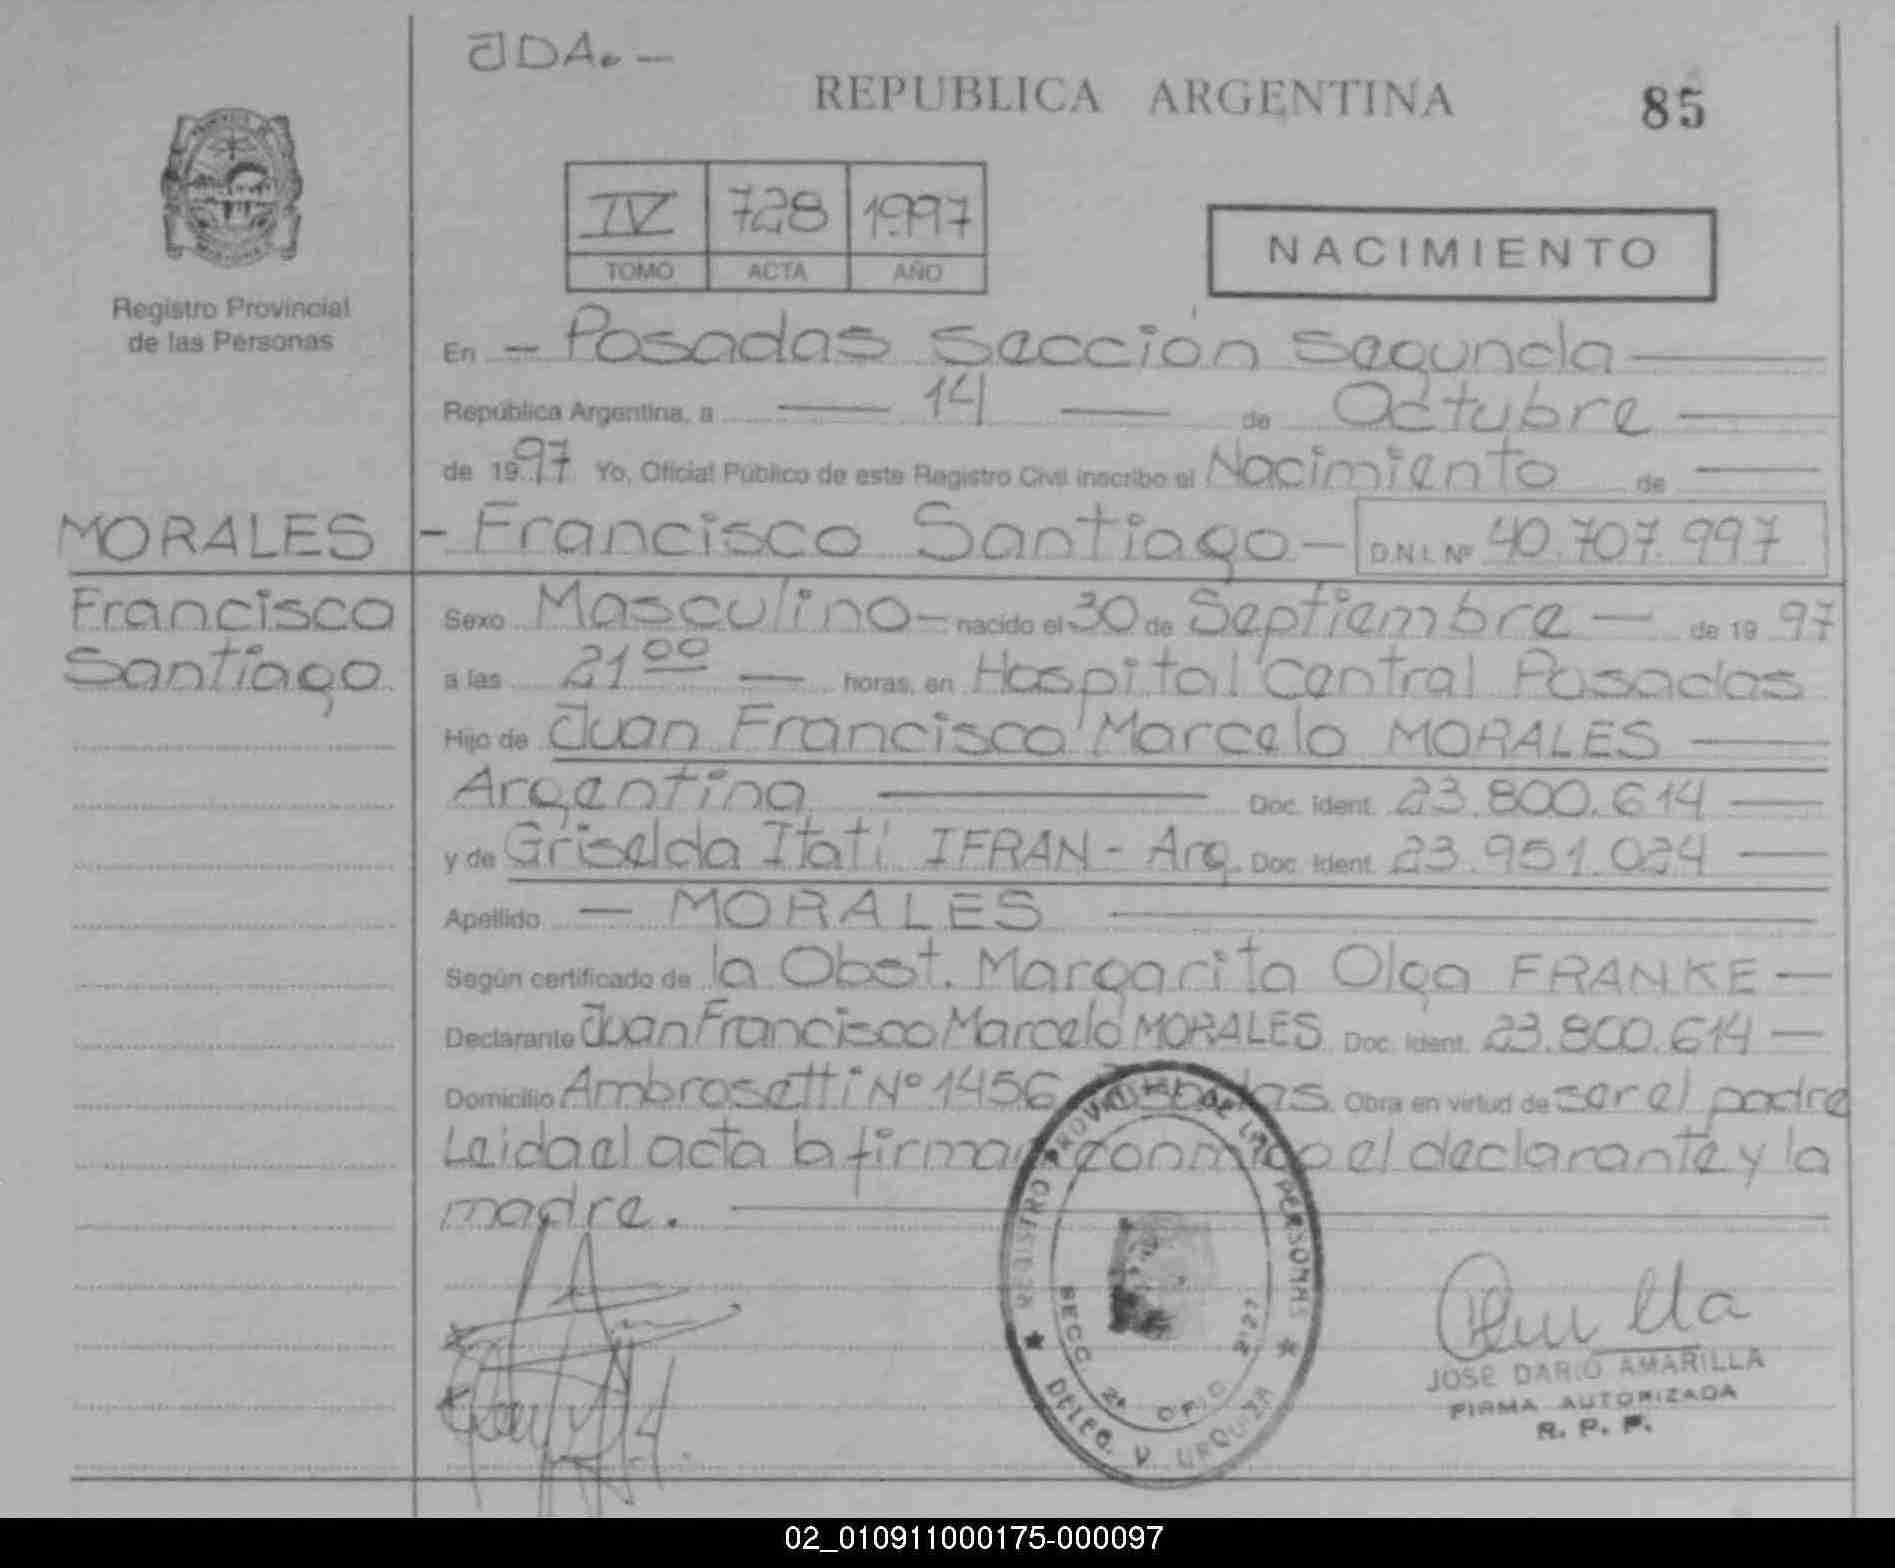 JDA. -
REPUBLICA ARGENTINA 85
IV 728 1997
TOMO ACTA AÑO
NACIMIENTO
Registro Provincial
de las Personas
En - Posadas Sección Segunda
República Argentina, a 14 de Octubre
de 1997 Yo, Oficial Público de este Registro Civil inscribo el Nacimiento de
MORALES - Francisco Santiago - D.N.I. Nº 40.707.997
Francisco
Santiago
Sexo Masculino - nacido el 30 de Septiembre - de 1997
a las 21 00 - horas, en Hospital Central Posadas
Hijo de Juan Francisco Marcelo MORALES
Argentina Doc. Ident. 23.800.614
y de Griselda Itatí IFRAN - Arg. Doc. Ident. 23.951.024
Apellido - MORALES
Según certificado de la Obst. Margarita Olga FRANKE -
Declarante Juan Francisco Marcelo MORALES Doc. Ident. 23.800.614 -
Domicilio Ambrosetti Nº 1456 Posadas Obra en virtud de ser el padre
Leida el acta la firman conmigo el declarante y la
madre.
REGISTRO PROVINCIAL DE LAS PERSONAS
SECC. 2ª OFIC. 2127
DELEG. V. URQUIZA
JOSE DARIO AMARILLA
FIRMA AUTORIZADA
R. P. P.
02_010911000175-000097